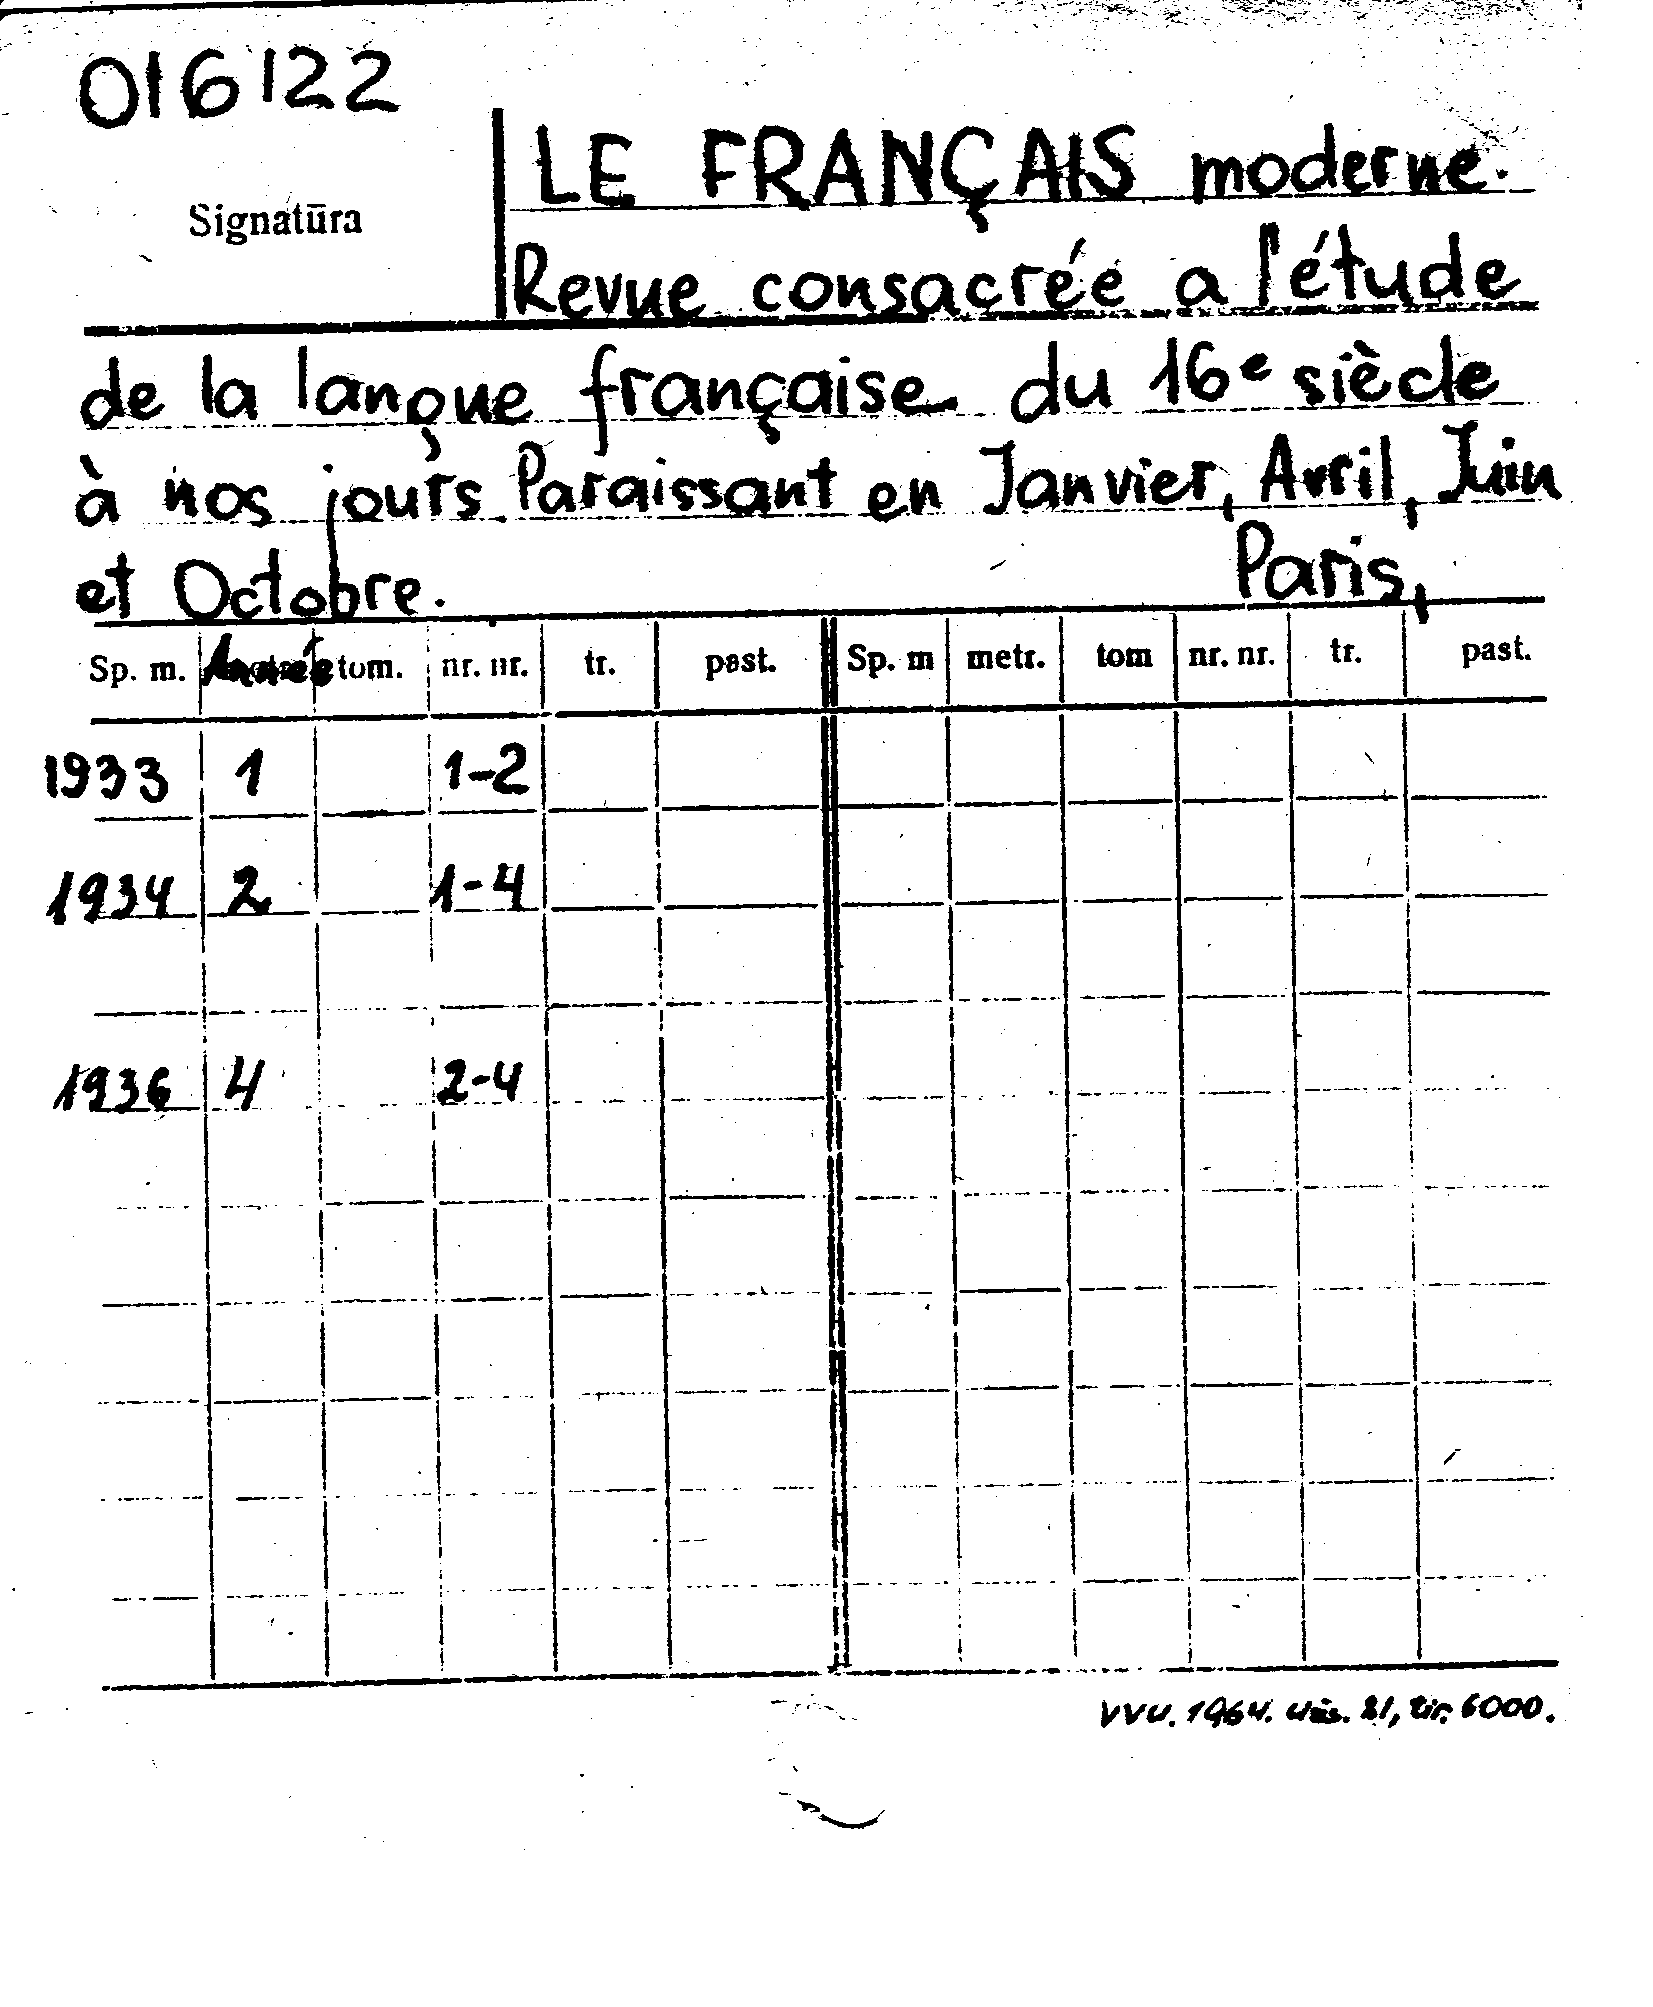 016122
LE FRANÇAIS moderne.
Signatūra
Revue consacrée a l'étude
de la langue française du 16e siècle
à nos jours Paraissant en Janvier, Avril, Juin
et Octobre. Paris,
Sp. m. Année tom. nr. nr. tr. past. Sp. m metr. tom nr. nr. tr. past.
1933 1 1-2
1934 2 1-4
1936 4 2-4
VVU. 1964. tir. 6000.